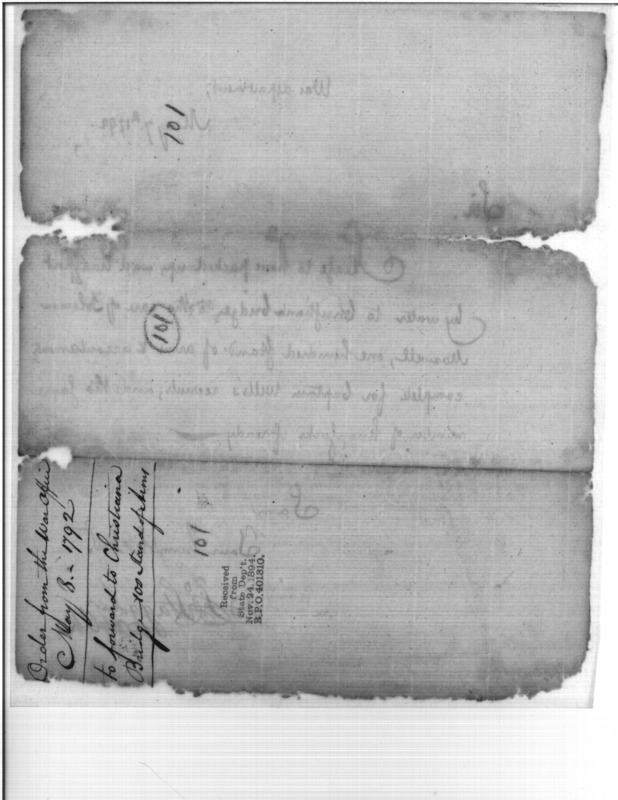 War department,
May 7th 1792
101
Sir.
Please to have packed up, and transport
by water to Christiana bridge, to the care of Solomon
101
Maxwell, one hundred stand of arms & accoutrements
complete for Captain recruits, and the same
number of
I am
Sir
Order from the War Office
May 8.- 1792
to forward to Christiana
Bridg 100 stand of Arms
101
Received
from
State Dep't.
Nov. 24. 1894.
R.P.O. 401310.